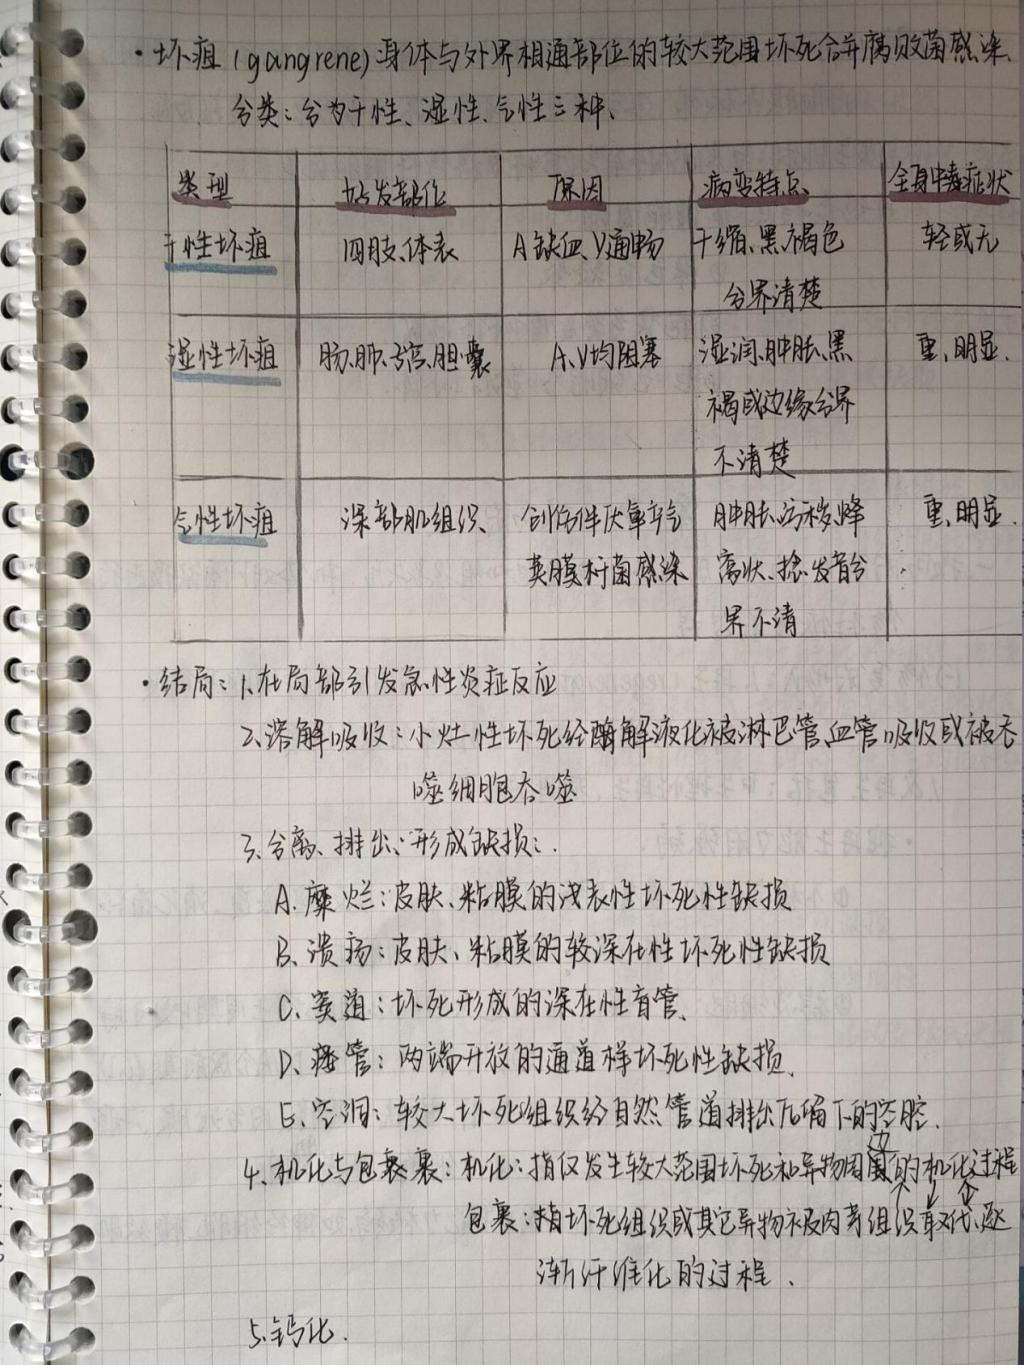 ·坏疽(gangrene)身体与外界相通部位的较大范围坏死合并腐败菌感染.
分类:分为干性、湿性、气性三种、
类型 好发部位 原因 病变特点 全身中毒症状
干性坏疽 四肢、体表 A缺血、V通畅 干缩、黑褐色 轻或无
分界清楚
湿性坏疽 肠、肺、子宫、胆囊 A、V均阻塞 湿润、肿胀、黑 重、明显.
褐或边缘分界
不清楚
气性坏疽 深部肌组织、 创伤伴厌氧产气 肿胀、污秽、蜂 重、明显.
荚膜杆菌感染 窝状、捻发音分
界不清
·结局:1.在局部引发急性炎症反应
2.溶解吸收:小灶性坏死经酶解液化被淋巴管、血管吸收或被吞
噬细胞吞噬
3.分离、排出、形成缺损:.
A.糜烂:皮肤、粘膜的浅表性坏死性缺损
B.溃疡:皮肤、粘膜的较深在性坏死性缺损
C.窦道:坏死形成的深在性盲管、
D.瘘管:两端开放的通道样坏死性缺损、
E.空洞:较大坏死组织经自然管道排出后留下的空腔.
边
4.机化与包裹:机化:指仅发生较大范围坏死和异物周围的机化过程
包裹:指坏死组织或其它异物被肉芽组织取代、逐
渐纤维化的过程.
5.钙化.